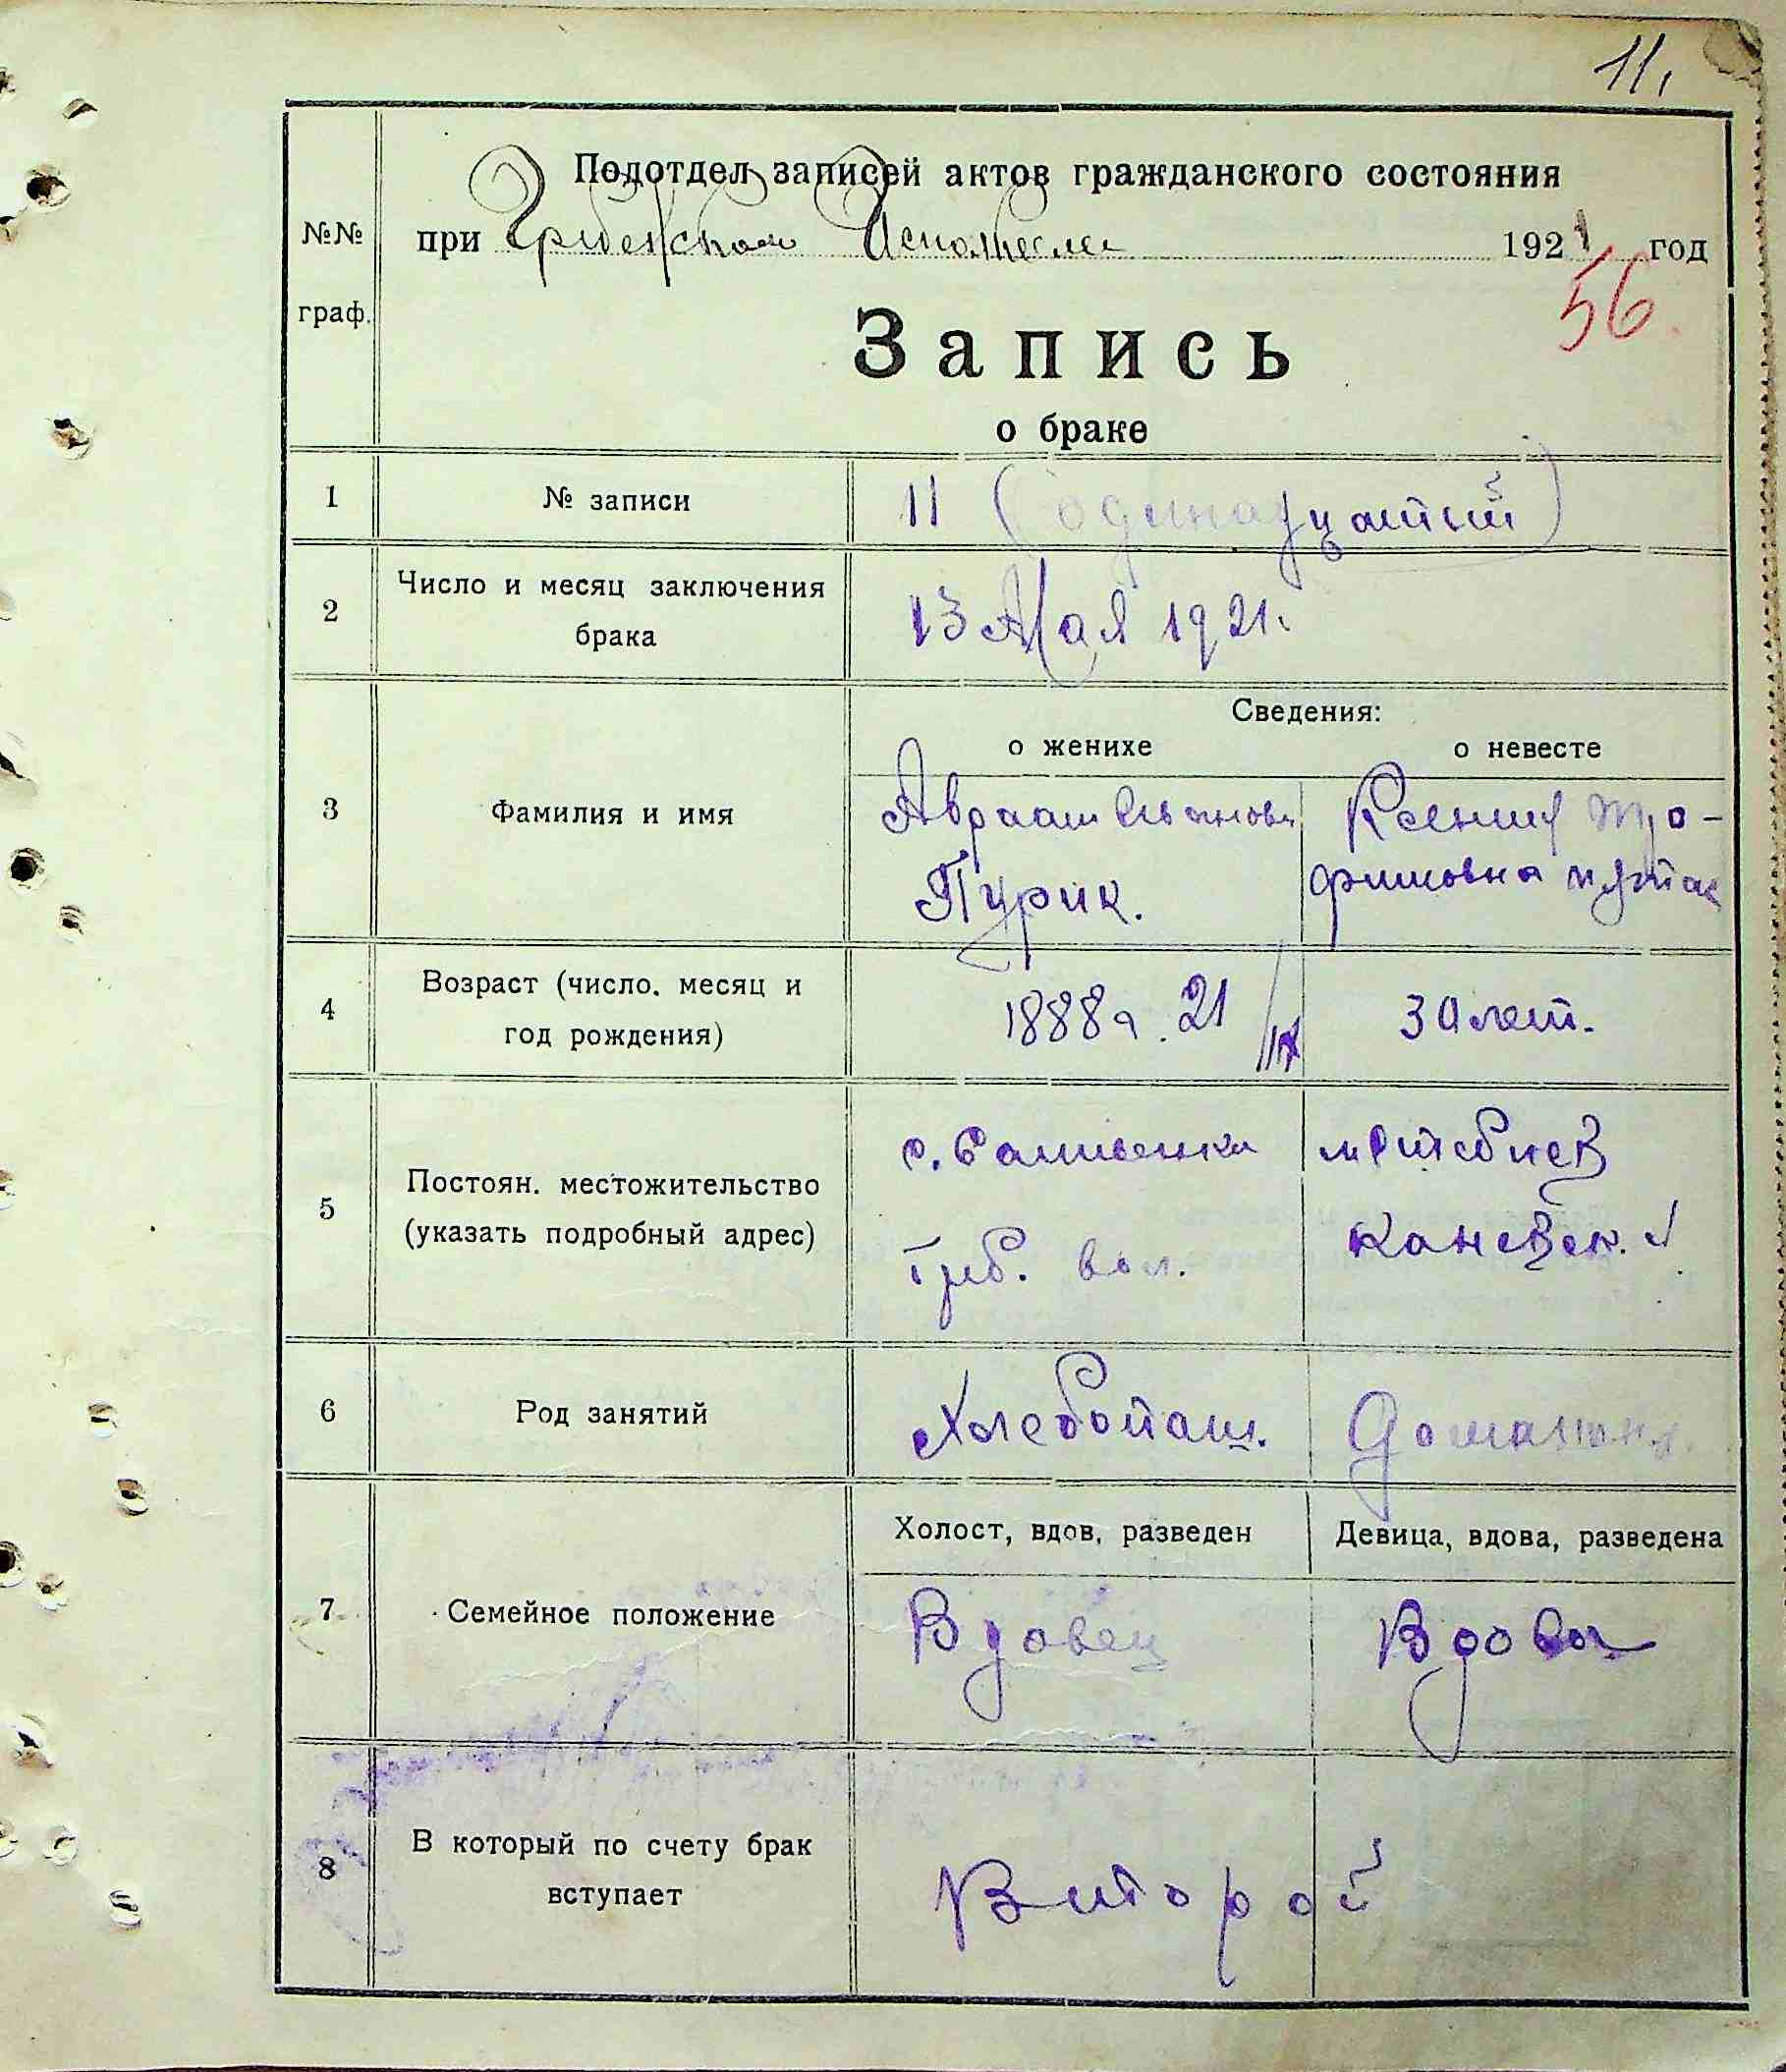 11.
Подотдел записей актов гражданского состояния
при Грибенском Исполкоме 1921 год
№№
граф.
56
Запись
о браке
1 № записи 11 (одинадцатый)
2 Число и месяц заключения
брака
13 Мая 1921.
Сведения:
о женихе о невесте
3 Фамилия и имя
Авраам Иванов Ксения Тро-
Турик. фимовна
4 Возраст (число. месяц и
год рождения)
1888 г. 21 30 лет.
5 Постоян. местожительство
(указать подробный адрес)
с.
Греб. вол. Каневск.
6 Род занятий Хлебопаш. Домашния
Холост, вдов, разведен Девица, вдова, разведена
7 Семейное положение Вдовец Вдова
8 В который по счету брак
вступает
Второй